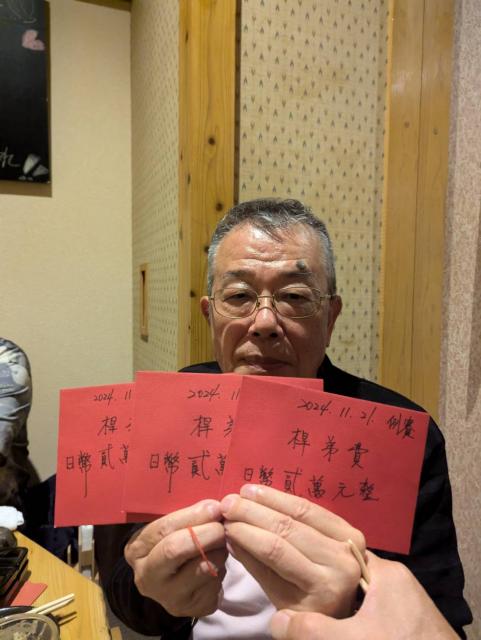 れ
2024. 11
桿
日幣 貳 萬
2024. 11
桿 弟
日幣 貳 萬
2024. 11. 21. 例賽
桿 弟 費
日幣 貳 萬 元 整